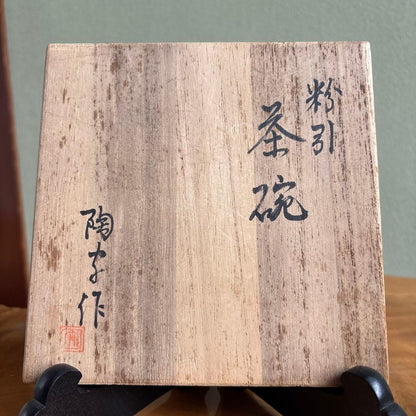 粉引
茶碗
陶安作